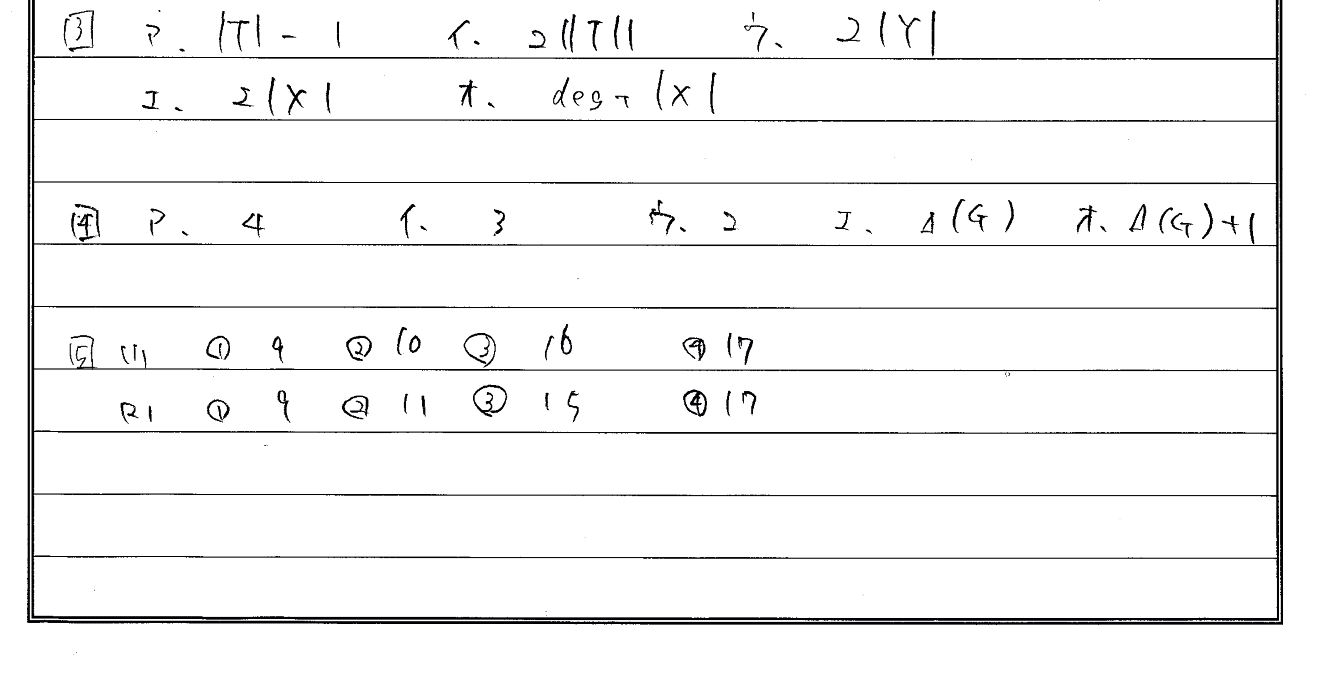 [3] ア. |T| - 1 イ. 2||T|| ウ. 2|Y|
エ. Σ|X| オ. deg_T|X|
[4] ア. 4 イ. 3 ウ. 2 エ. Δ(G) オ. Δ(G)+1
[5] (1) ① 9 ② 10 ③ 16 ④ 17
(2) ① 9 ② 11 ③ 15 ④ 17